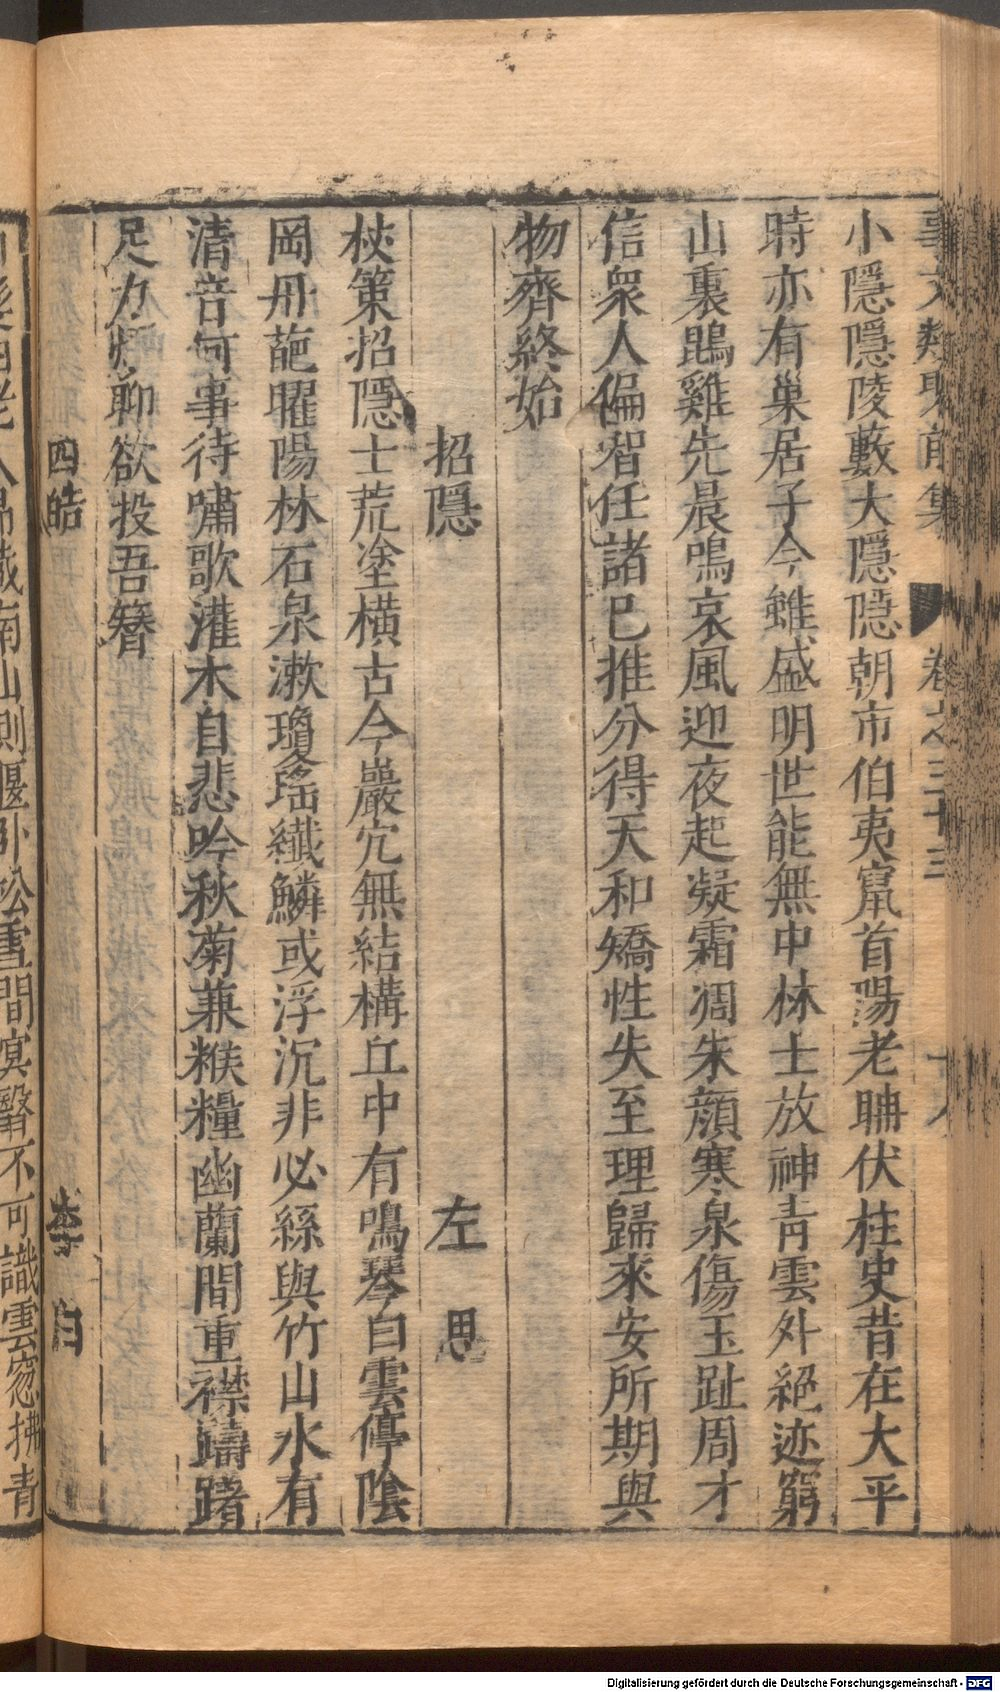 事文類聚前集 卷之三十三 十八
小隱隱陵藪大隱隱朝市伯夷竄首陽老聃伏柱史昔在大平
時亦有巢居子今雖盛明世能無中林士放神青雲外絕迹窮
山裏鵾雞先晨鳴哀風迎夜起凝霜凋朱顏寒泉傷玉趾周才
信衆人偏智任諸己推分得天和矯性失至理歸來安所期與
物齊終始
招隱 左思
杖策招隱士荒塗橫古今巖穴無結構丘中有鳴琴白雲停陰
岡丹葩曜陽林石泉漱瓊瑤纖鱗或浮沉非必絲與竹山水有
清音何事待嘯歌灌木自悲吟秋菊兼糇糧幽蘭間重襟躊躇
足力煩聊欲投吾簪
四皓 李白
白髮四老人昂藏南山側偃卧松雪間冥翳不可識雲窓拂青
Digitalisierung gefördert durch die Deutsche Forschungsgemeinschaft - DFG